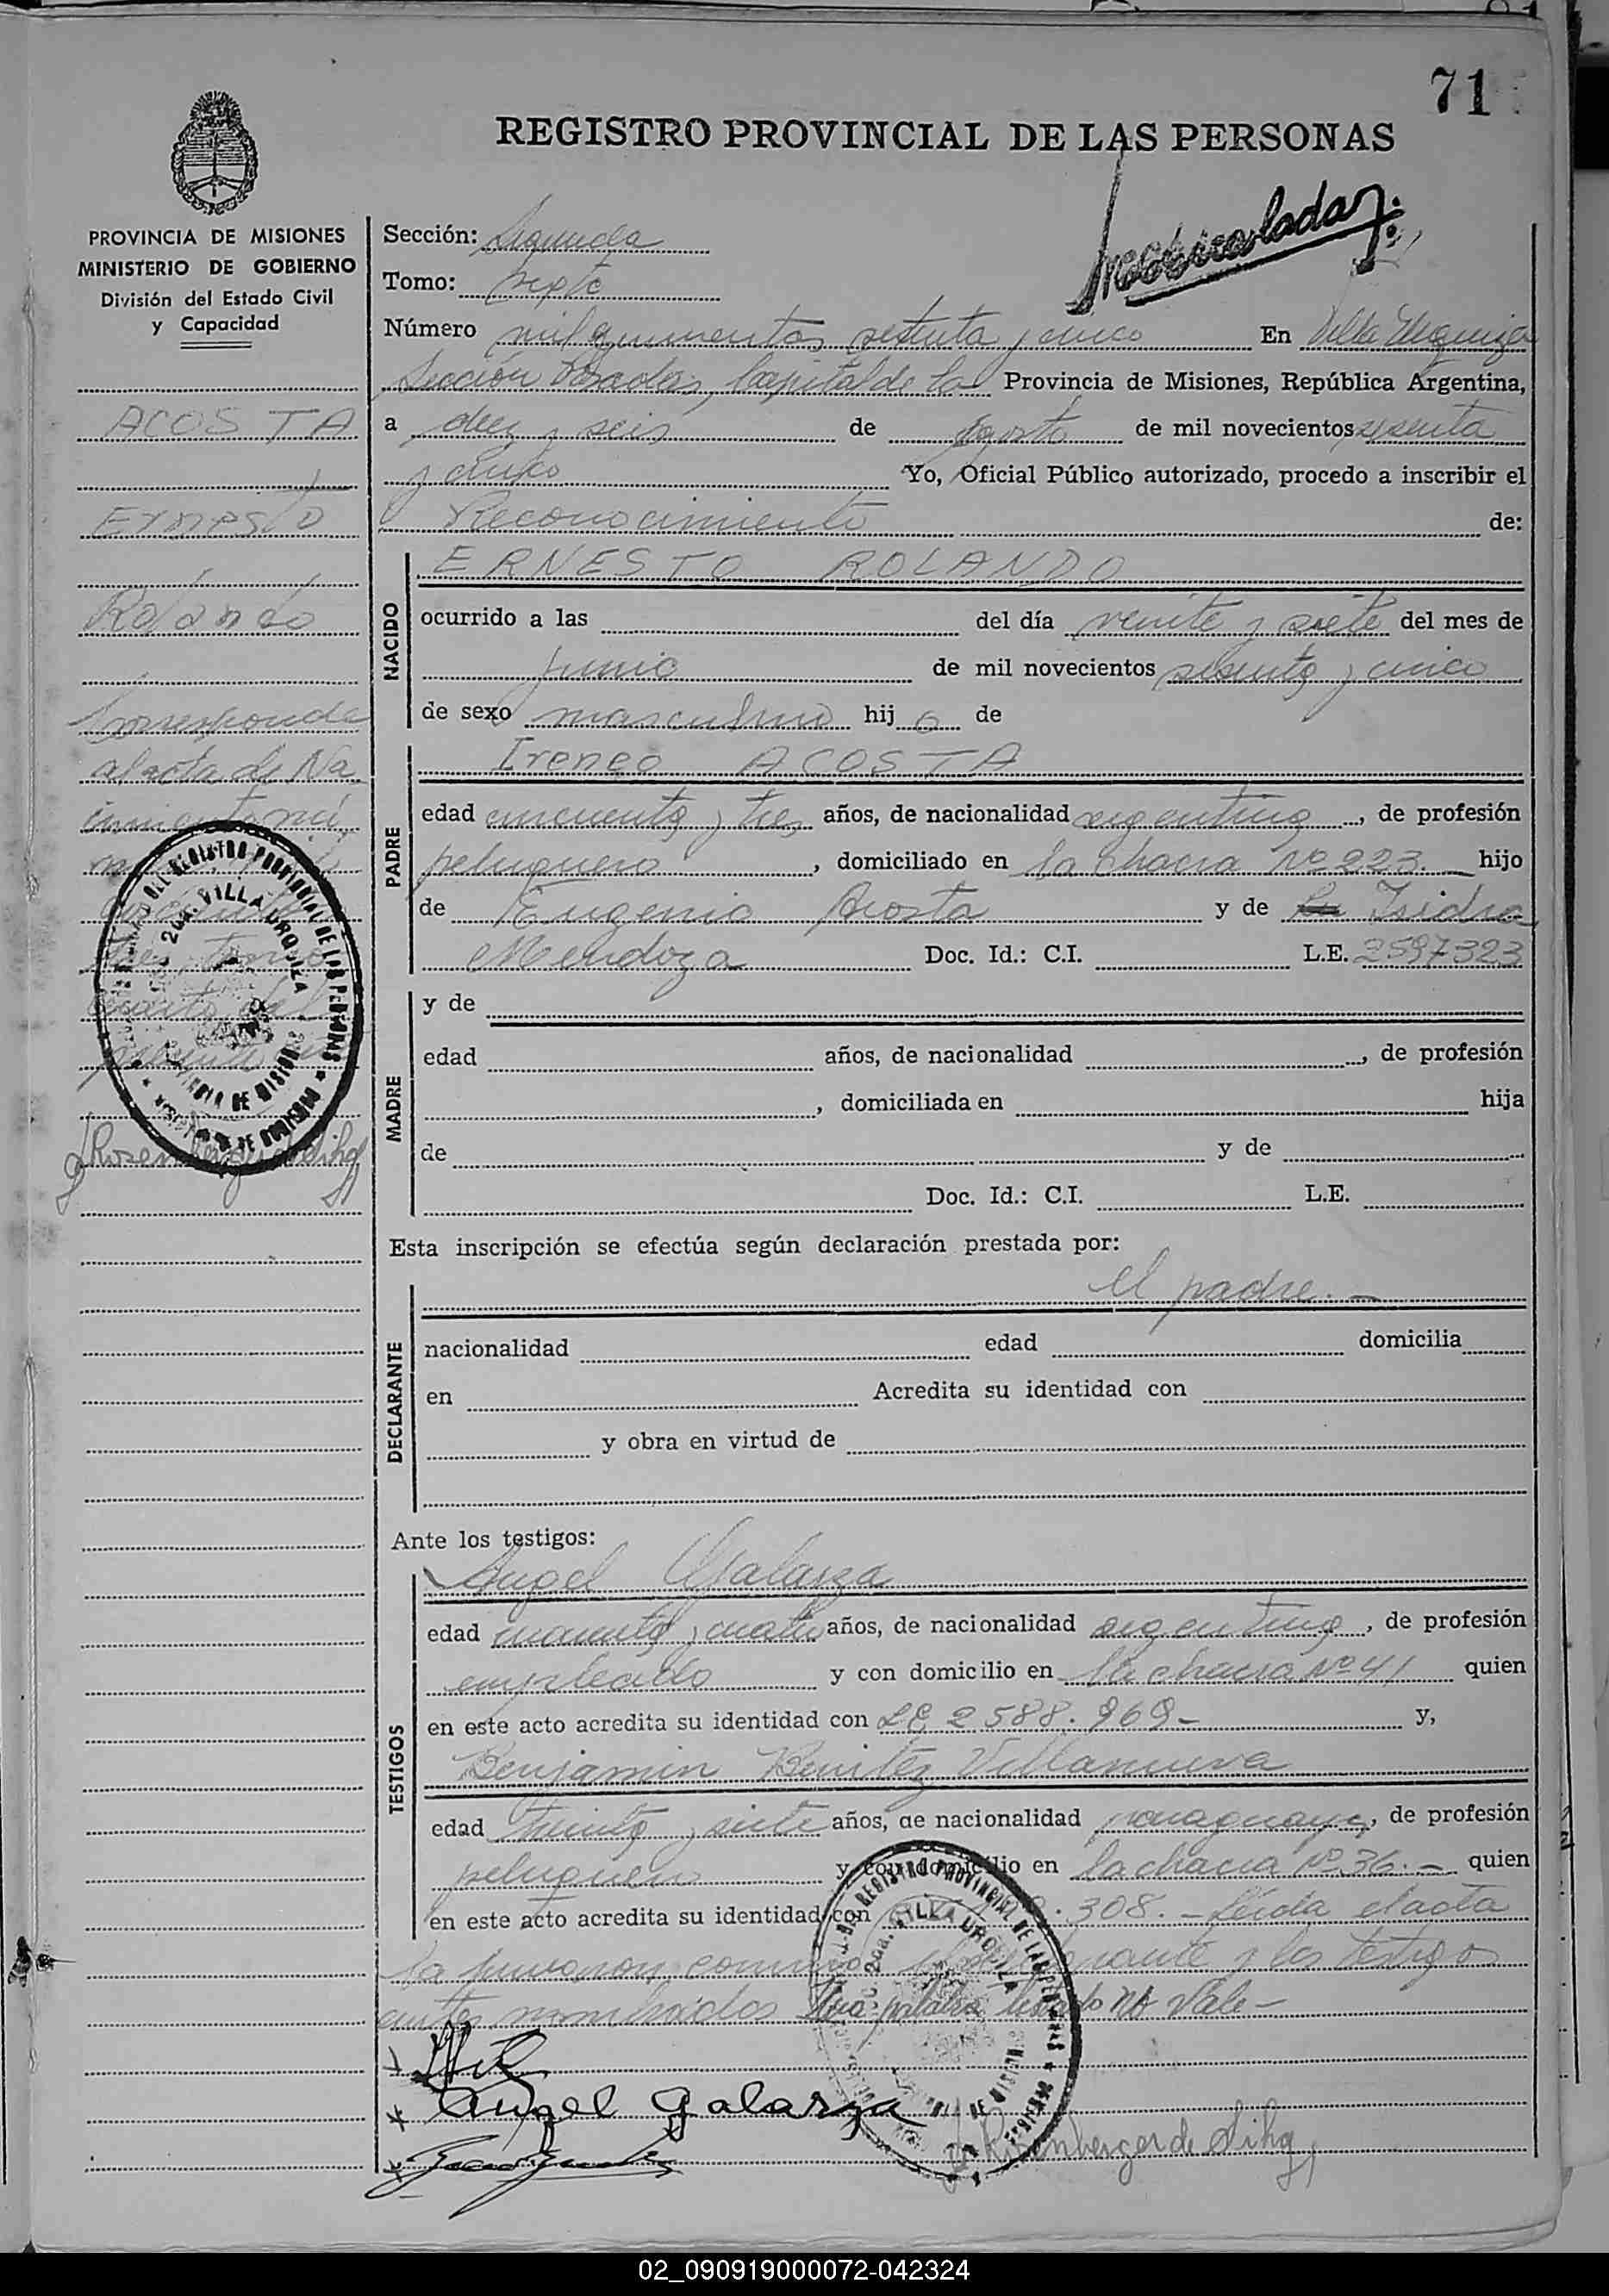 71
REGISTRO PROVINCIAL DE LAS PERSONAS
Matriculada
PROVINCIA DE MISIONES
MINISTERIO DE GOBIERNO
División del Estado Civil
y Capacidad
ACOSTA
Ernesto
Rolando
Corresponde
al acta de Na
cimiento nú
Sección: Segunda
Tomo: sexto
Número mil quinientos setenta y cinco En Villa Urquiza
Sección Posadas, Capital de la Provincia de Misiones, República Argentina,
a diez y seis de agosto de mil novecientos sesenta
y cinco Yo, Oficial Público autorizado, procedo a inscribir el
Reconocimiento de:
NACIDO
ERNESTO ROLANDO
ocurrido a las del día veinte y siete del mes de
junio de mil novecientos sesenta y cinco
de sexo masculino hijo de
PADRE
Ireneo ACOSTA
edad cincuenta y tres años, de nacionalidad argentina, de profesión
peluquero, domiciliado en la chacra Nº 223. hijo
de Eugenio Acosta y de Isidra
Mendoza Doc. Id.: C.I. L.E. 2597323
MADRE
y de
edad años, de nacionalidad , de profesión
, domiciliada en hija
de y de
Doc. Id.: C.I. L.E.
Esta inscripción se efectúa según declaración prestada por:
el padre.-
DECLARANTE
nacionalidad edad domicilia
en Acredita su identidad con
y obra en virtud de
Ante los testigos:
TESTIGOS
Angel Galarza
edad cuarenta y cuatro años, de nacionalidad argentina, de profesión
empleado y con domicilio en la chacra Nº 41 quien
en este acto acredita su identidad con LE 2588.969- y,
Benjamin Benitez Villanueva
edad treinta y siete años, de nacionalidad paraguaya, de profesión
peluquero y con domicilio en la chacra Nº 36.- quien
en este acto acredita su identidad con .308.- Leída el acta
la firmaron conmigo y los testigos
antes nombrados Una palabra testado no Vale-
Angel Galarza
Rosenberger de
02_090919000072-042324